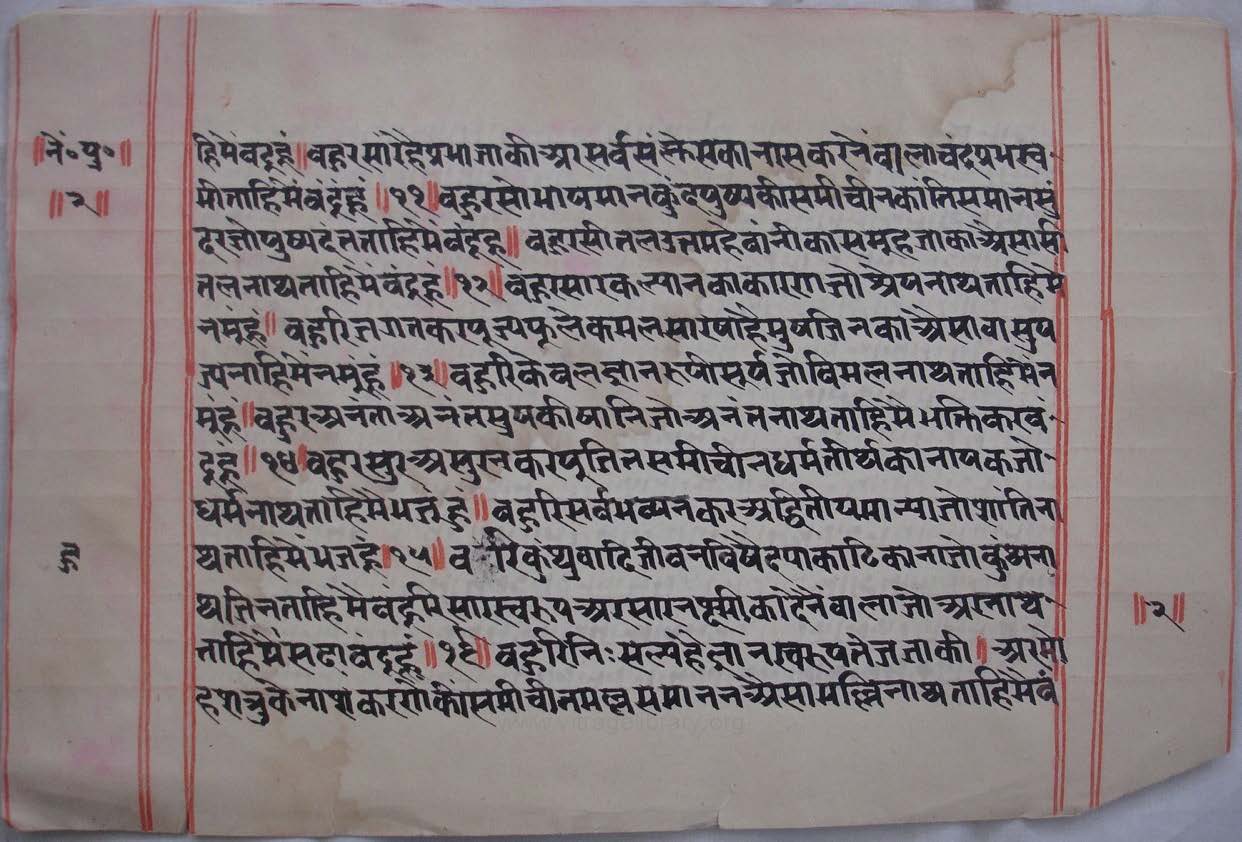 ने॰पु॰
॥२॥
हिमैंवंदूहूं॥ वहुरसारहैप्रभाजाकीअरसर्वसंक्लेसकानासकरनैंवालाचंद्रप्रभस्व
मीताहिमैंवंदूंहूं॥११॥वहुरसोभायमानकुंदपुष्पकीसमीचीनकांतिसमानसुं
दरजोपुष्पदंतताहिमैवंदूहूं॥ वहुरसीतलउत्तमहैवांनीकासमूहजाकाअैसासी
तलनाथताहिमैंवंदूहूं॥१२॥वहुरसारकल्यानकाकारणजोश्रेयनाथताहिमैं
नमूंहूं॥ वहुरिजगतकरपूज्यफूलेकमलसारषाहैमुषजिनकाअैसावासुप
ज्यताहिमैंनमूंहूं॥१३॥वहुरिकेवलज्ञानरूपीसूर्यजोविमलनाथताहिमैंन
मूंहूं॥वहुरअनताअनंतसुषकीषानिजोअनंतनाथताहिमैभक्तिकरवं
दूहूं॥१४॥वहुरसुरअसुरनकरपूजितसमीचीनधर्मतीर्थकोनायकजो
धर्मनाथताहिमैभजूहूं॥ वहुरिसर्वभव्यनकरअद्वितीयमान्याजोशांतिना
थताहिमैंभजूहूं॥१५॥व रिकुंथुवादिजीवनविषैदयाकाटिकानाजोकुंथना
थजिनताहिमैवंदूहूंमैसारस्वरूपअरसारलक्ष्मीकोदेनैंवालाजोअरनाथ
ताहिमैंसदावंदूहूं॥१६॥वहुरिनिःसल्यहैज्ञानस्वरूपतेजजाकी॥अरमो
हशत्रुकेनाशकरणेकौंसमीचीनमल्लसमाननअैसामल्लिनाथताहिमैवं
॥२॥